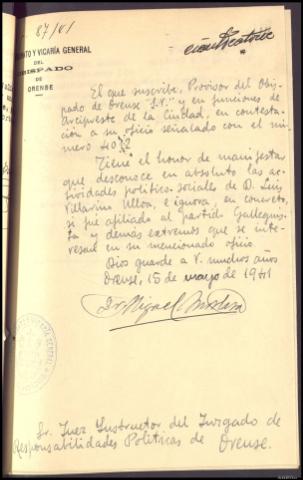 87/41
cuarenta
RATO Y VICARÍA GENERAL
DEL
OBISPADO
DE
ORENSE
El que suscribe, Provisor del Obis-
pado de Orense "S.V." y en funciones de
Arcipreste de la Ciudad, en contesta-
ción a su oficio señalado con el nú-
mero 4082
Tiene el honor de manifestar
que desconoce en absoluto las ac-
tividades político-sociales de D. Luis
Villarino Ulloa, e ignora, en concreto,
si fué afiliado al partido Galleguis-
ta y demás extremos que se inte-
resan en su mencionado oficio
Dios guarde a V. muchos años
Orense, 15 de mayo de 1941
Dr Miguel
Sr. Juez Instructor del Juzgado de
Responsabilidades Políticas de Orense.